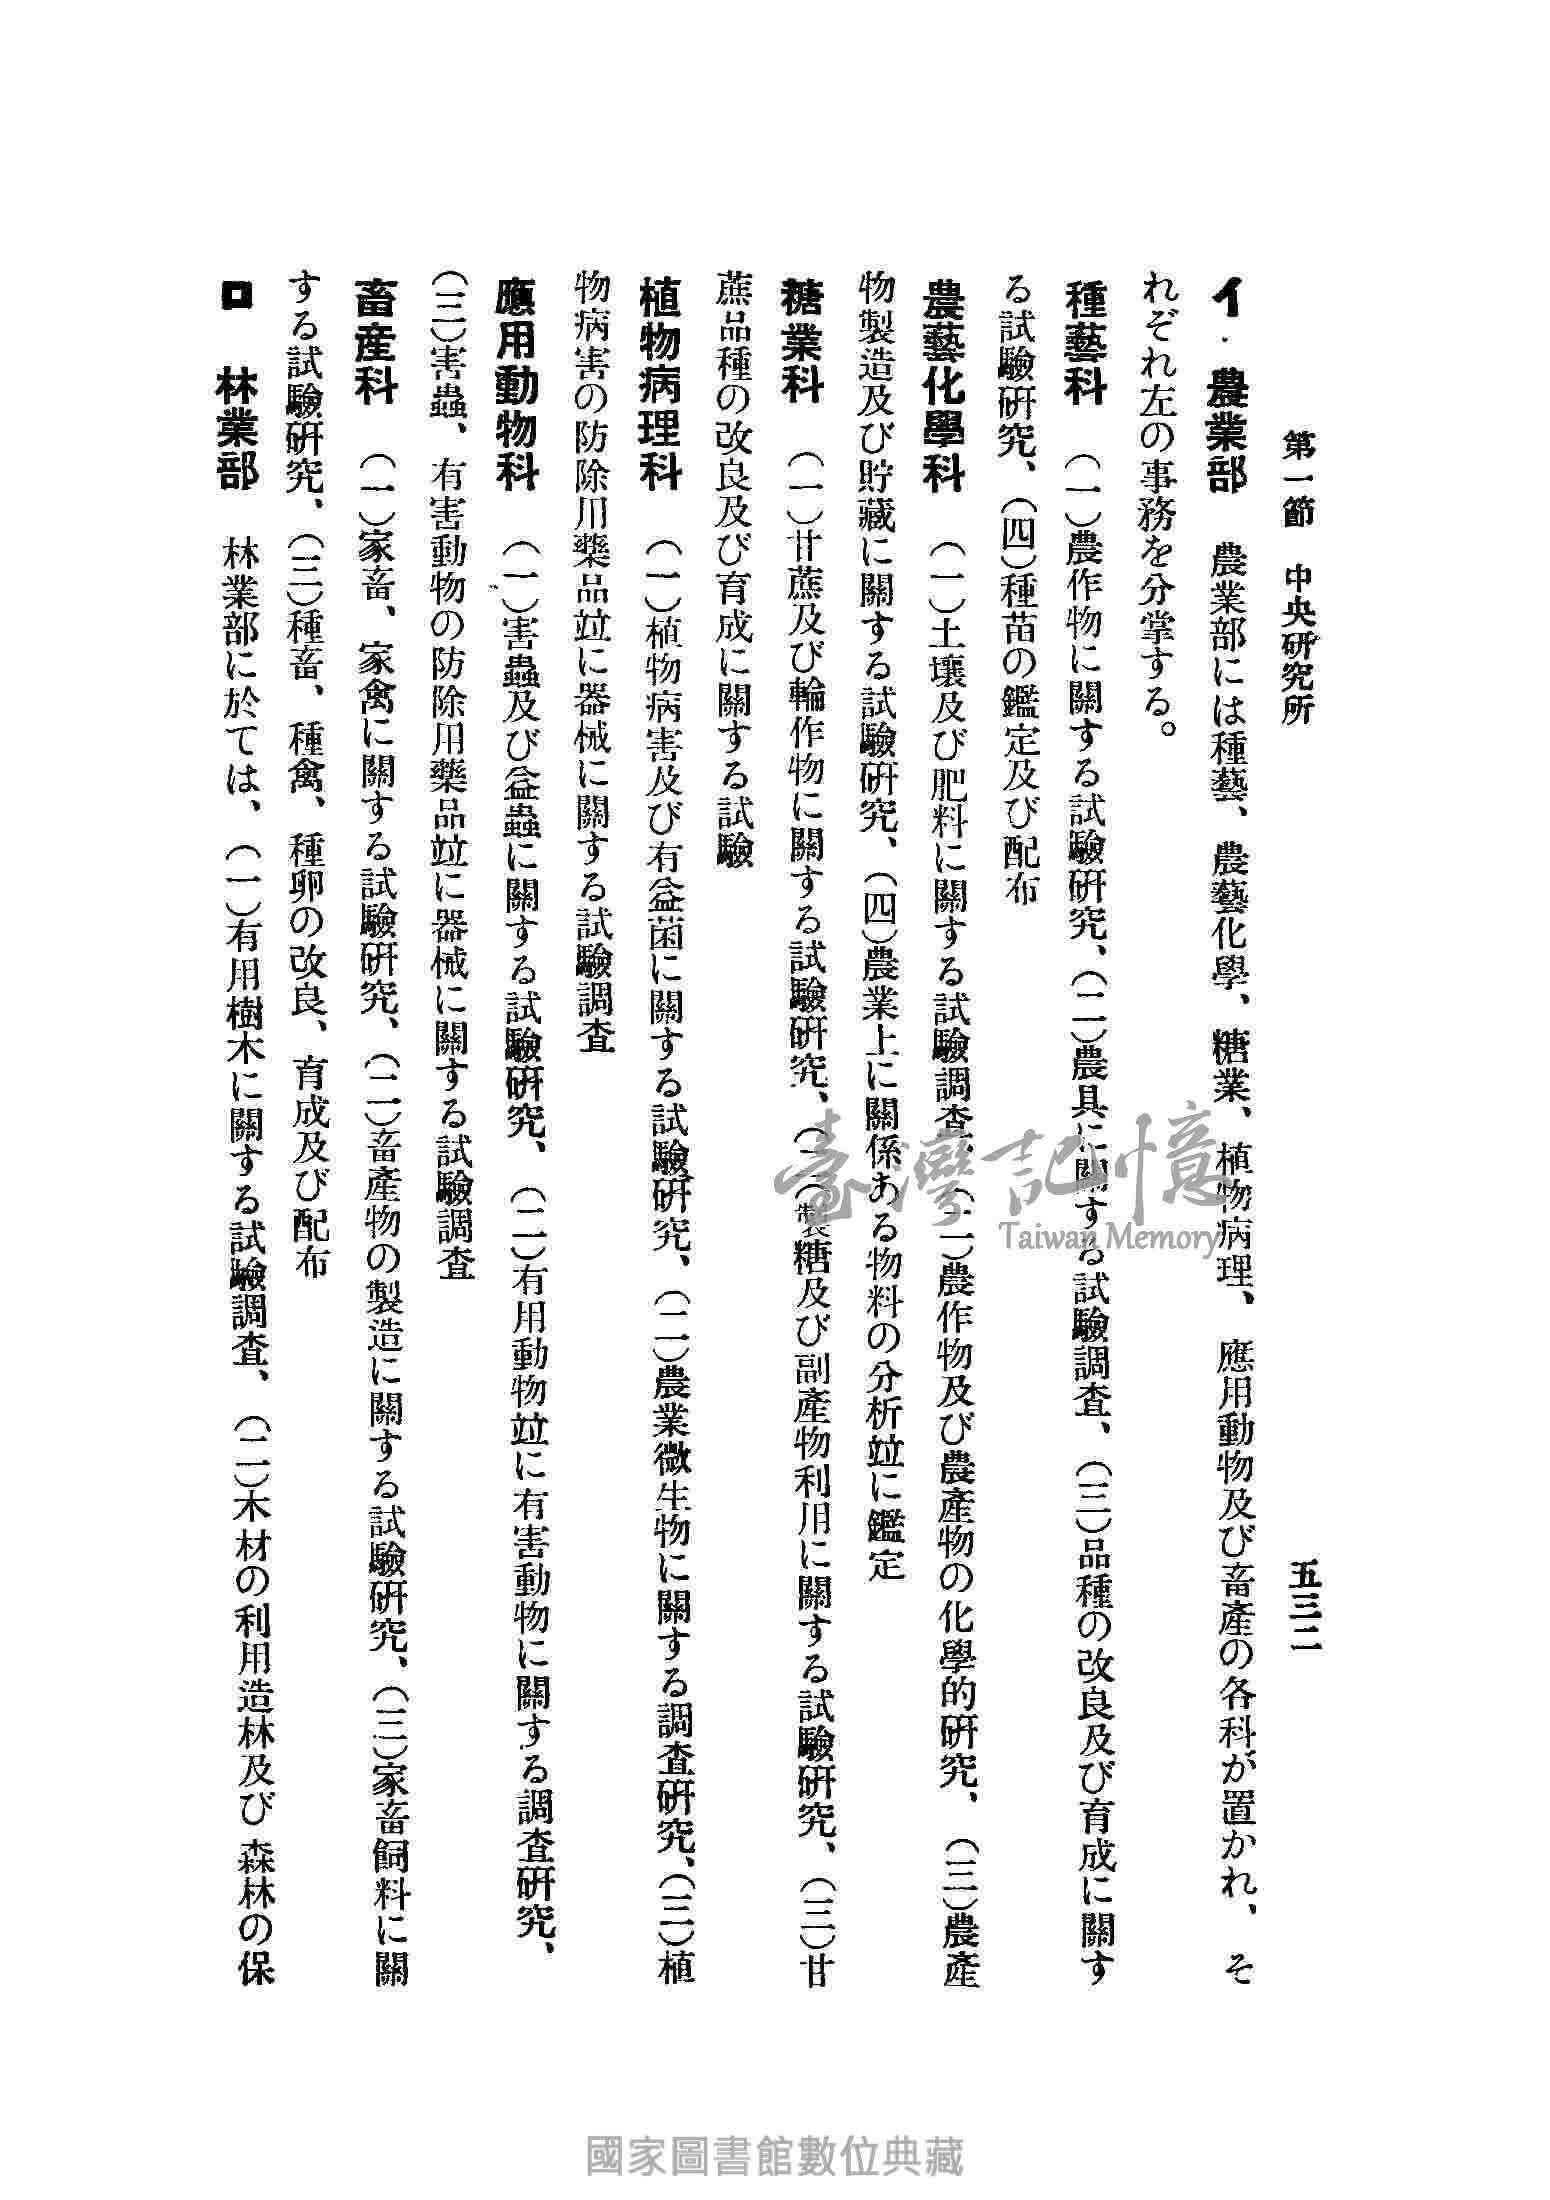 第一節　中央研究所　五三二
イ・農業部　農業部には種藝、農藝化學、糖業、植物病理、應用動物及び畜產の各科が置かれ、そ
れぞれ左の事務を分掌する。
種藝科　（一）農作物に關する試驗研究、（二）農具に關する試驗調査、（三）品種の改良及び育成に關す
る試驗研究、（四）種苗の鑑定及び配布
農藝化學科　（一）土壤及び肥料に關する試驗調査、（二）農作物及び農產物の化學的研究、（三）農產
物製造及び貯藏に關する試驗研究、（四）農業上に關係ある物料の分析竝に鑑定
糖業科　（一）甘蔗及び輪作物に關する試驗研究、（二）製糖及び副產物利用に關する試驗研究、（三）甘
蔗品種の改良及び育成に關する試驗
植物病理科　（一）植物病害及び有益菌に關する試驗研究、（二）農業微生物に關する調査研究、（三）植
物病害の防除用藥品竝に器械に關する試驗調査
應用動物科　（一）害蟲及び益蟲に關する試驗研究、（二）有用動物竝に有害動物に關する調査研究、
（三）害蟲、有害動物の防除用藥品竝に器械に關する試驗調査
畜産科　（一）家畜、家禽に關する試驗研究、（二）畜產物の製造に關する試驗研究、（三）家畜飼料に關
する試驗研究、（三）種畜、種禽、種卵の改良、育成及び配布
ロ　林業部　林業部に於ては、（一）有用樹木に關する試驗調査、（二）木材の利用造林及び森林の保
臺灣記憶
Taiwan Memory
國家圖書館數位典藏